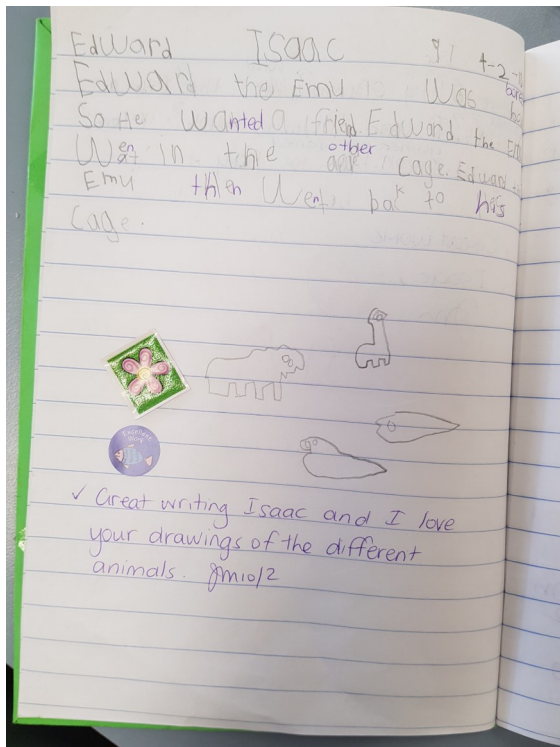 Edward Isaac
Edward the Emu was
So He wanted a friend. Edward the Em
Went in the other Cage. Edward
Emu then Went bak to his
Cage.
Excellent Work
✓ Great writing Isaac and I love
your drawings of the different
animals. 10/2